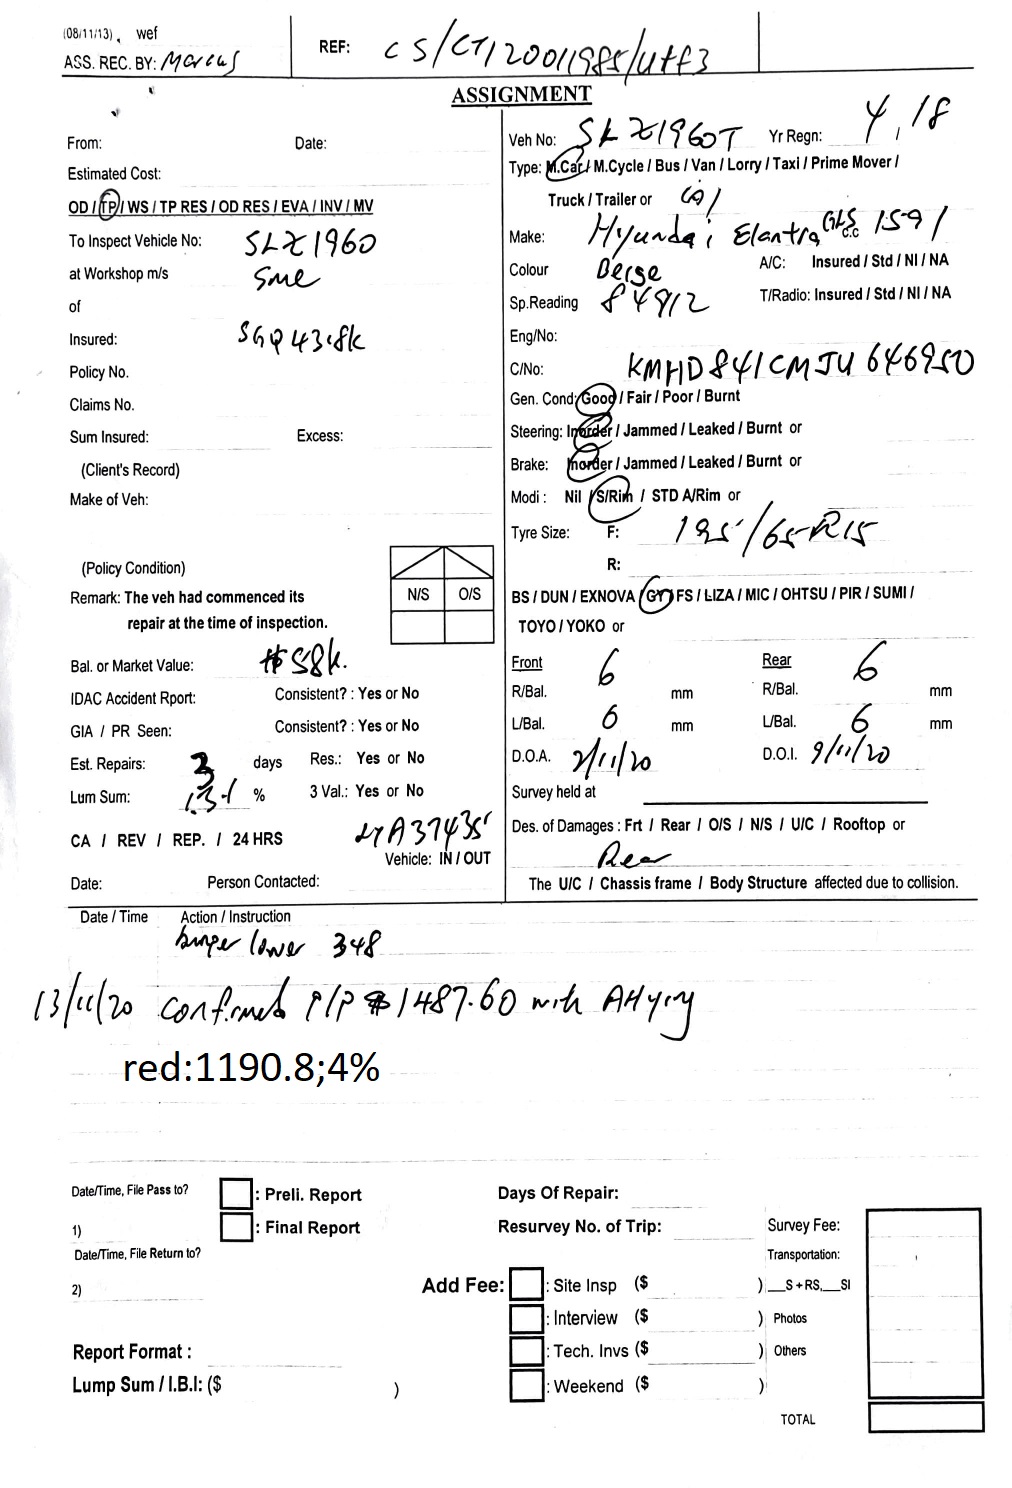 (08/11/13) , wef
ASS. REC. BY: Marcus
REF: CS/CT120011985/utf3
ASSIGNMENT
From: Date:
Estimated Cost:
OD / TP / WS / TP RES / OD RES / EVA / INV / MV
To Inspect Vehicle No: SLZ1960
at Workshop m/s Sme
of
Insured: SGQ4318K
Policy No.
Claims No.
Sum Insured: Excess:
(Client's Record)
Make of Veh:
(Policy Condition)
N/S O/S
Remark: The veh had commenced its
repair at the time of inspection.
Bal. or Market Value: $58k.
IDAC Accident Rport: Consistent? : Yes or No
GIA / PR Seen: Consistent? : Yes or No
Est. Repairs: 3 days Res.: Yes or No
Lum Sum: % 3 Val.: Yes or No
CA / REV / REP. / 24 HRS
Vehicle: IN / OUT
Date: Person Contacted:
Veh No: SLZ1960T Yr Regn: 4, 18
Type: M.Car / M.Cycle / Bus / Van / Lorry / Taxi / Prime Mover /
Truck / Trailer or
Make: Hyundai Elantra GLS c.c 1591
Colour Beige A/C: Insured / Std / NI / NA
Sp.Reading 84912 T/Radio: Insured / Std / NI / NA
Eng/No:
C/No: KMHD841CMJU646950
Gen. Cond: Good / Fair / Poor / Burnt
Steering: Inorder / Jammed / Leaked / Burnt or
Brake: Inorder / Jammed / Leaked / Burnt or
Modi : Nil / S/Rim / STD A/Rim or
Tyre Size: F: 195/65R15
R:
BS / DUN / EXNOVA / GY / FS / LIZA / MIC / OHTSU / PIR / SUMI /
TOYO / YOKO or
Front Rear
R/Bal. 6 mm R/Bal. 6 mm
L/Bal. 6 mm L/Bal. 6 mm
D.O.A. 2/11/20 D.O.I. 9/11/20
Survey held at
Des. of Damages : Frt / Rear / O/S / N/S / U/C / Rooftop or
Rear
The U/C / Chassis frame / Body Structure affected due to collision.
Date / Time Action / Instruction
bumper lower 348
13/11/20 confirmed P/P $1487.60 with AH
red:1190.8;4%
Date/Time, File Pass to?
1)
Date/Time, File Return to?
2)
: Preli. Report
: Final Report
Report Format :
Lump Sum / I.B.I: ($ )
Days Of Repair:
Resurvey No. of Trip:
Add Fee: : Site Insp ($ )
: Interview ($ )
: Tech. Invs ($ )
: Weekend ($ )
Survey Fee:
Transportation:
__S + RS,__SI
Photos
Others
TOTAL